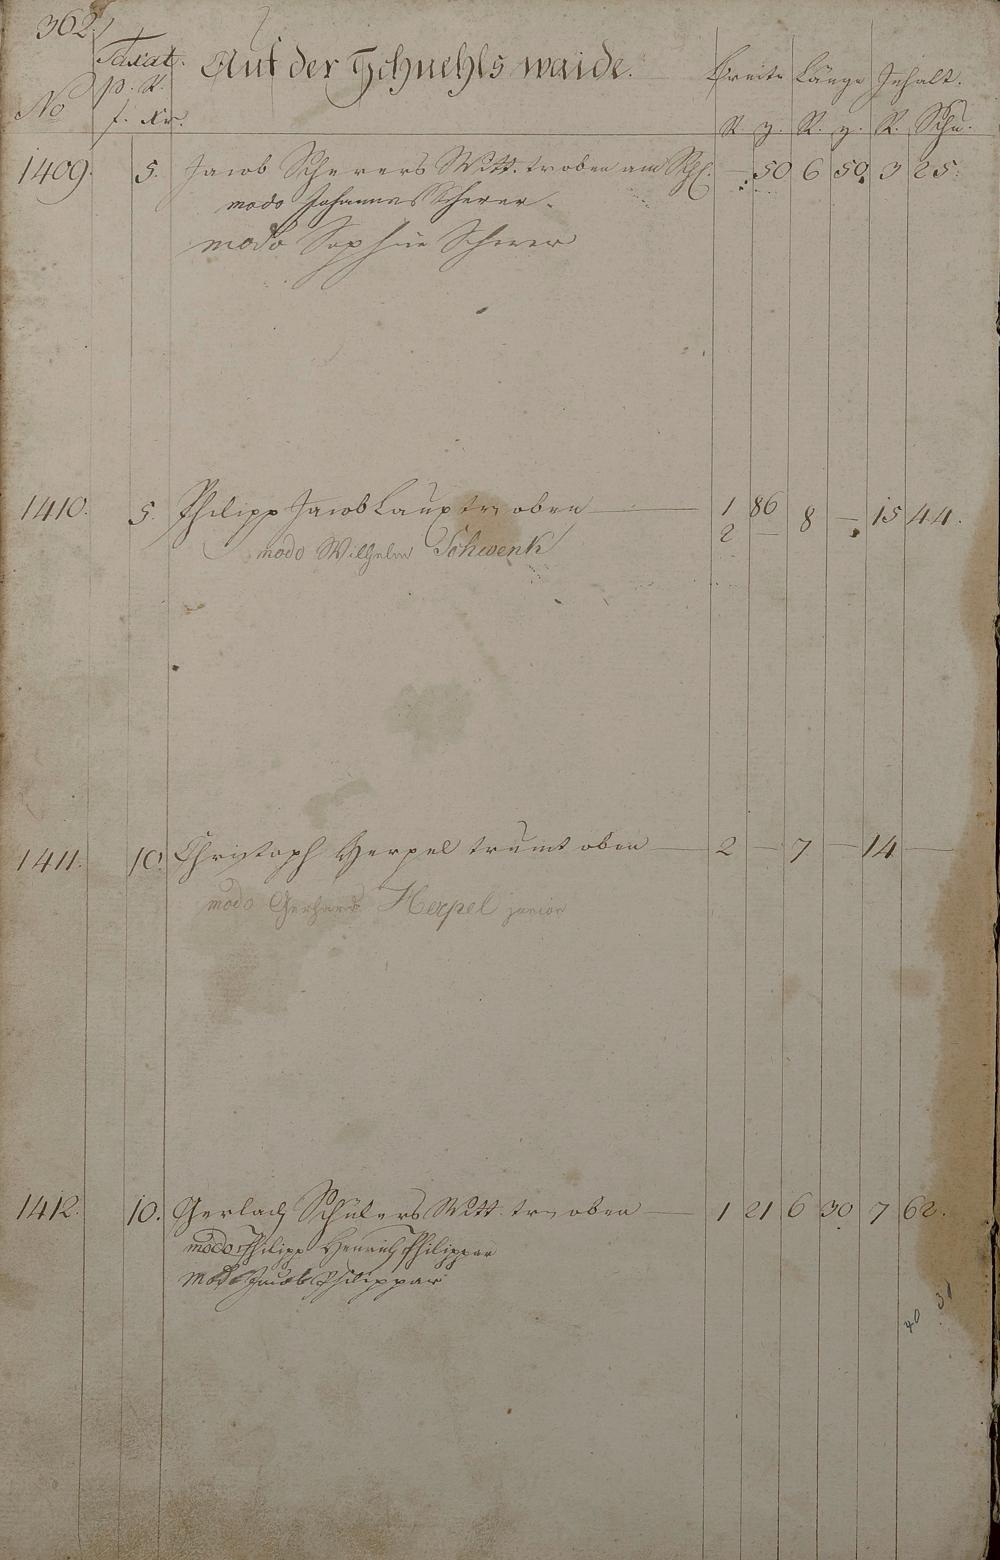 362.
Taxat. Auf der Schuehls waide. Breite Länge Inhalt.
No p. R. f. Xr. R. z. R. z. R. Schu.
1409. 5. Jacob Scherers Witt. tr oben am — 50 6 50 3 25.
modo Johannes Scherer.
modo Sophie Scherer
1410. 5. Philipp Jacob Laup trn oben — 1 86 8 — 15 44.
2 —
modo Wilhelm Schwenk
1411. 10. Christoph Herpel trumt oben — 2 — 7 — 14 —
modo Gerhard Herpel junior
1412. 10. Gerlach Schülers Witt. trn oben — 1 21 6 30 7 62.
modo Philipp Henrich Philippar
modo Jacob Philippar
40 31